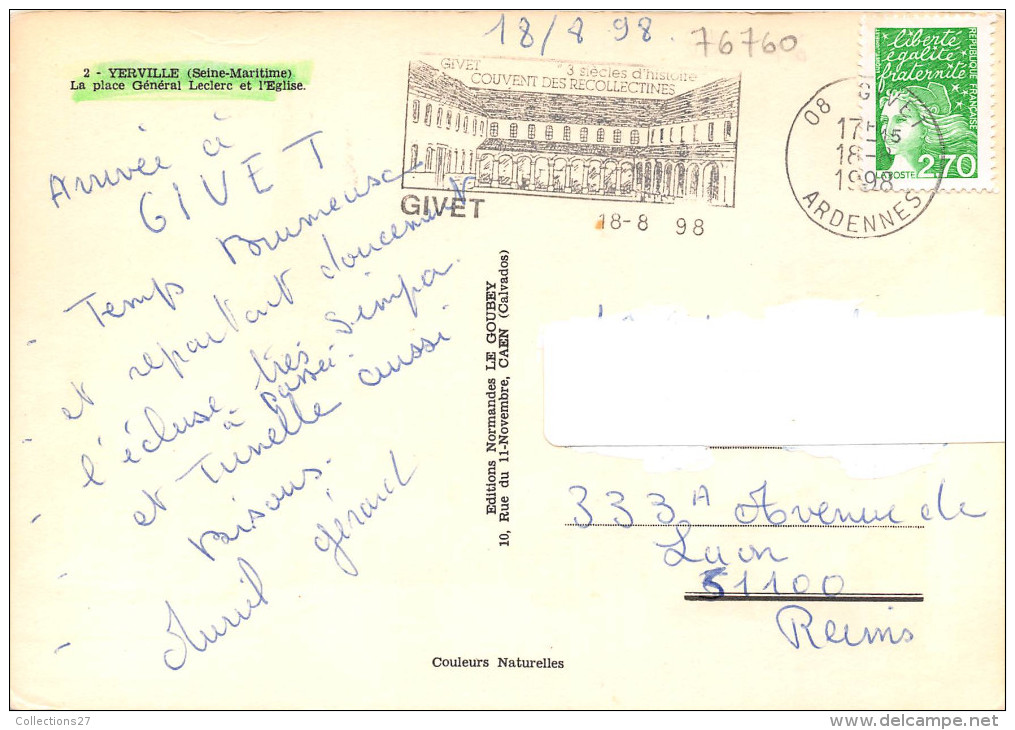 18/8 98.
76760
2 - YERVILLE (Seine-Maritime)
La place Général Leclerc et l'Eglise.
GIVET
"3 siècles d'histoire
COUVENT DES RECOLLECTINES
GIVET
18-8 98
08 GIVET
17H15
18-8
1998
ARDENNES
liberté
égalité
fraternité
RÉPUBLIQUE FRANÇAISE
LA POSTE
2,70
Arrivée à
GIVET
Temps Brumeuse
et repartant doucement
l'écluse très Simpa.
à Passée.
et Tunelle aussi
Baisous.
Muriel Gérard
Editions Normandes LE GOUBEY
10, Rue du 11-Novembre, CAEN (Calvados)
333A Avenue de
Laon
51100
Reims
Couleurs Naturelles
Collections27
delcampe.net